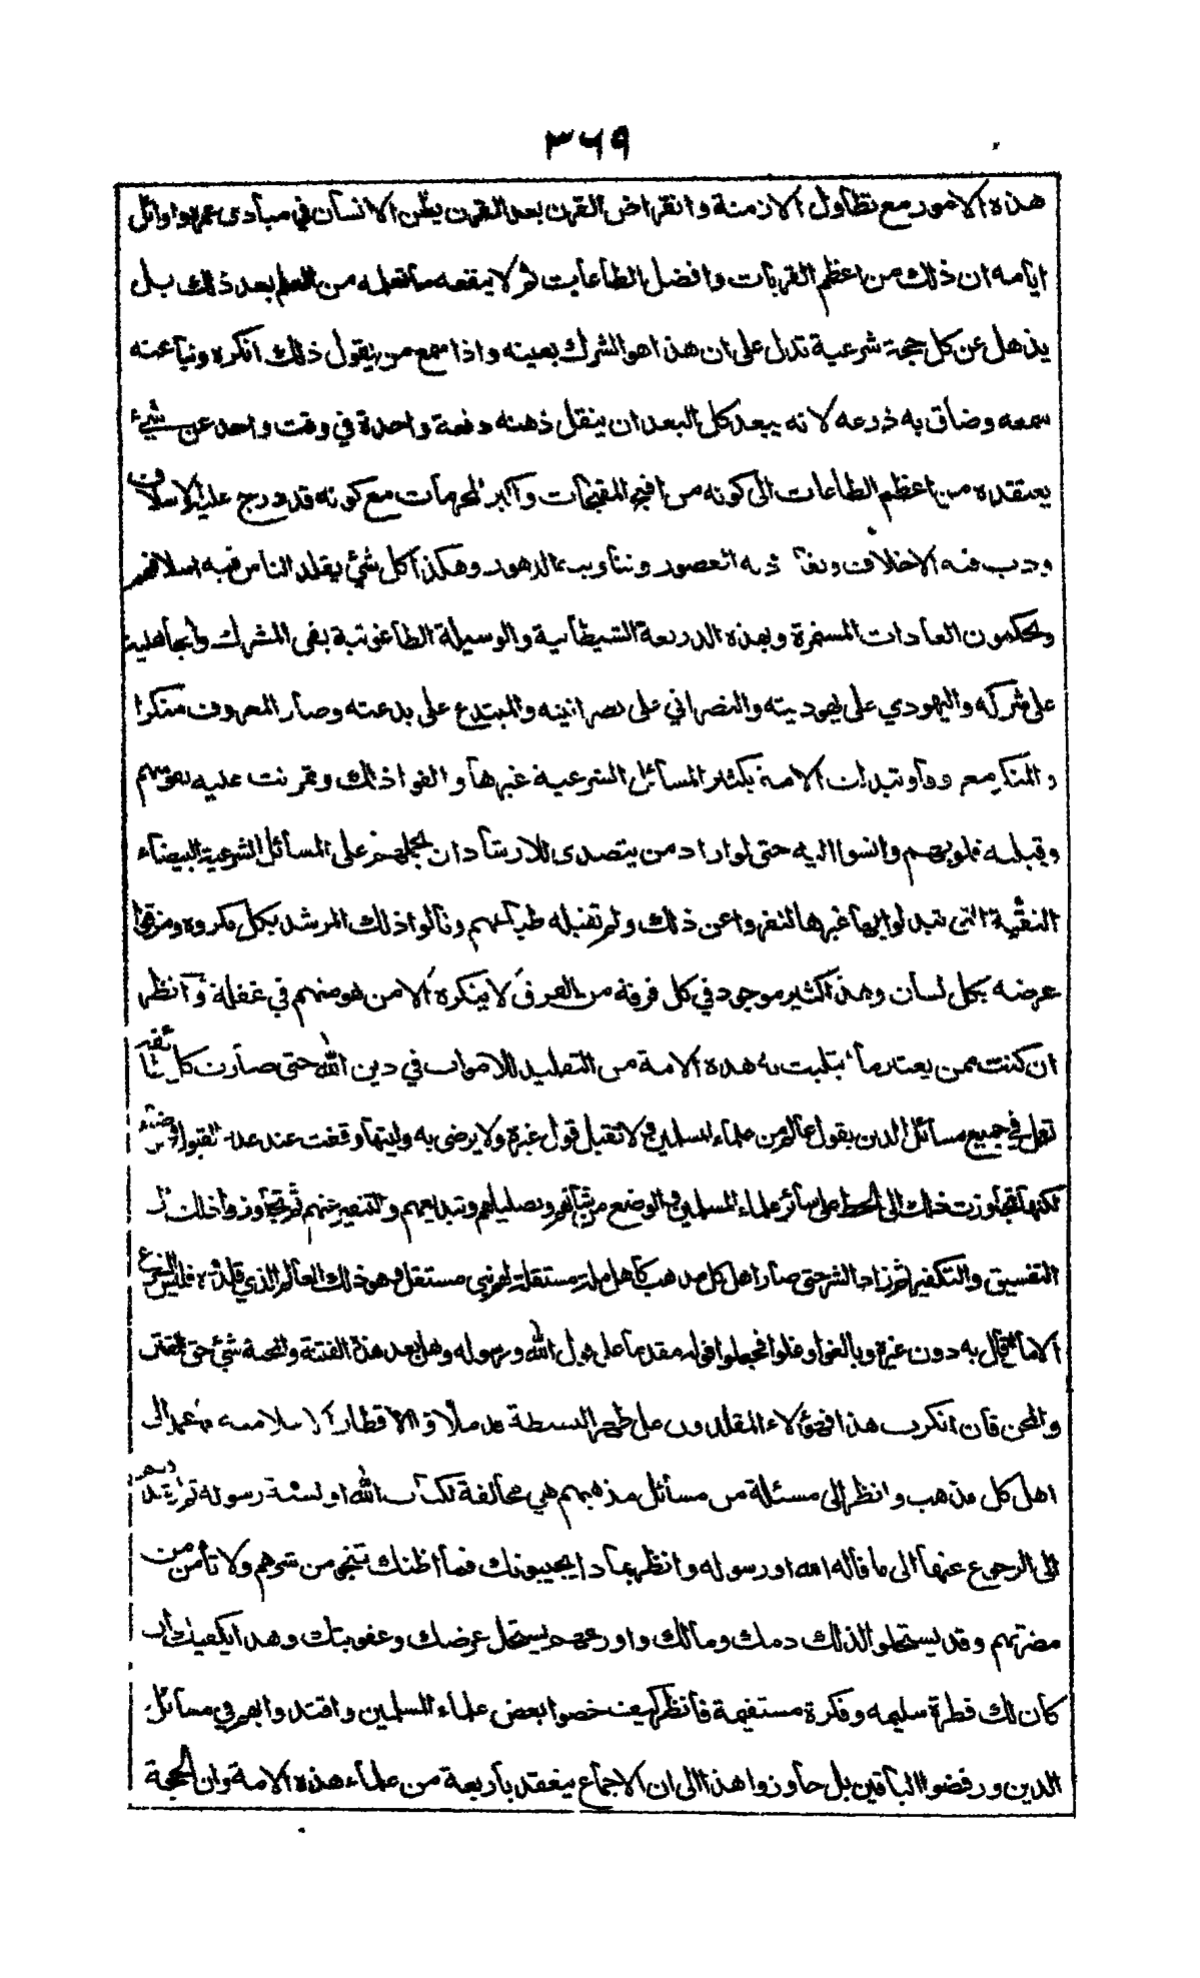 ٣٦٩
هذه الامور مع تطاول الازمنة وانقراض القرن بعد القرن يظن الانسان في مبادى عمره واوائل
ايامه ان ذلك من اعظم القربات وافضل الطاعات ثم لا ينفعه ما تعلمه من العلم بعد ذلك بل
يذهل عن كل حجة شرعية تدل على ان هذا هو الشرك بعينه واذا سمع من يقول ذلك انكره ونبا عنه
سمعه وضاق به ذرعه لانه يبعد كل البعد ان ينقل ذهنه دفعة واحدة في وقت واحد عن شيء
يعتقده من اعظم الطاعات الى كونه من اقبح المقبحات واكبر المحرمات مع كونه قد درج عليه الاسلاف
ودب فيه الاخلاف العصور وتناوبته الدهور وهكذا كل شئ يقلد الناس فيه اسلافهم
ويحكمون العادات المستمرة وبهذه الذريعة الشيطانية والوسيلة الطاغوتية بقى المشرك والجاهلية
على شركه واليهودي على يهوديته والنصراني على نصرانيته والمبتدع على بدعته وصار المعروف منكرا
والمنكر معروفا وتبدلت الامة بكثير المسائل الشرعية غيرها والفوا ذلك ومرنت عليه نفوسهم
وقبلته قلوبهم وانسوا اليه حتى لو اراد من يتصدى للارشاد ان يحملهم على المسائل الشرعية البيضاء
النقية التي تبدلوا بها غيرها لنفروا عن ذلك ولم تقبله طبائعهم ونالوا ذلك المرشد بكل مكروه ومزقوا
عرضه بكل لسان وهذا كثير موجود في كل فرقة من الفرق لا ينكره الا من هو منهم في غفلة وانظر
ان كنت ممن يعتبر ما ابتليت به هذه الامة من التقليد للاموات في دين الله حتى صارت كل
تعمل في جميع مسائل الدين بقول عالم من علماء المسلمين لا تقبل قول غيره ولا يرضى به وليتها وقفت عند عدم القبول
لكنها تجاوزت ذلك الى الحط على سائر علماء المسلمين والوضع من شأنهم وتضليلهم وتبديعهم والتنفير عنهم ثم تجاوزوا ذلك الى
التفسيق والتكفير ثم زاد الشر حتى صار اهل كل مذهب كاهل ملة مستقلة لهم نبي مستقل وهو ذلك العالم الذي قلدوه فليس الشرع
الا ما قال به دون غيره وبالغوا وغلوا فجعلوا قوله مقدما على قول الله ورسوله وهل بعد هذه الفتنة والمحنة شئ حتى الفتن
والمحن فان انكرت هذا فهؤلاء المقلدون على ظهر البسيطة قد ملأوا الاقطار الاسلامية فاعمد الى
اهل كل مذهب وانظر الى مسئلة من مسائل مذهبهم هي مخالفة لكتاب الله او لسنة رسوله ثم ارشدهم
الى الرجوع عنها الى ما قاله الله او رسوله وانظر بماذا يجيبونك فما اظنك تنجو من شرهم ولا تأمن من
مضرتهم وقد يستحلون لذلك دمك ومالك واورعهم يستحل عرضك وعقوبتك وهذا يكفيك ان
كان لك فطرة سليمه وفكرة مستقيمة فانظر كيف خصوا بعض علماء المسلمين واقتدوا بهم في مسائل
الدين ورفضوا الباقين بل جاوزوا هذا الى ان الاجماع ينعقد باربعة من علماء هذه الامة وان الحجة